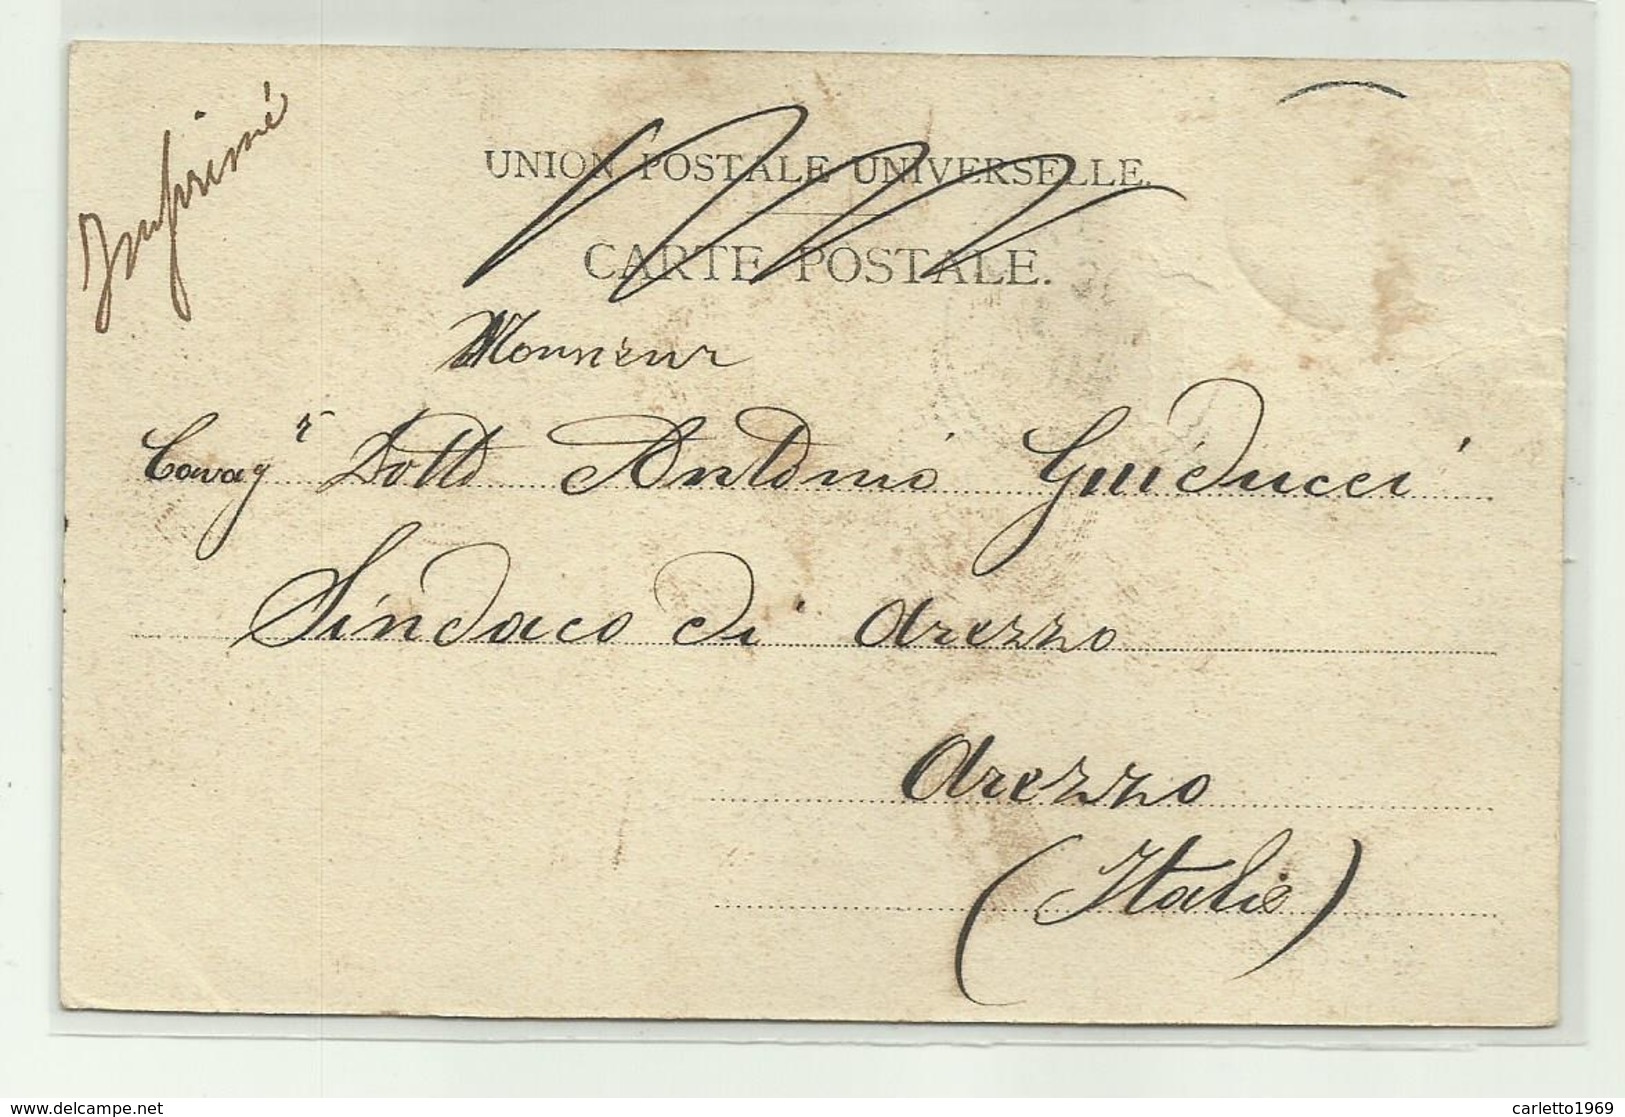 Imprimé
UNION POSTALE UNIVERSELLE.
CARTE POSTALE.
Monsieur
Cavagr Dotto Antonio Guiducci
Sindaco di Arezzo
Arezzo
(Italie)
www.delcampe.net
carletto1969